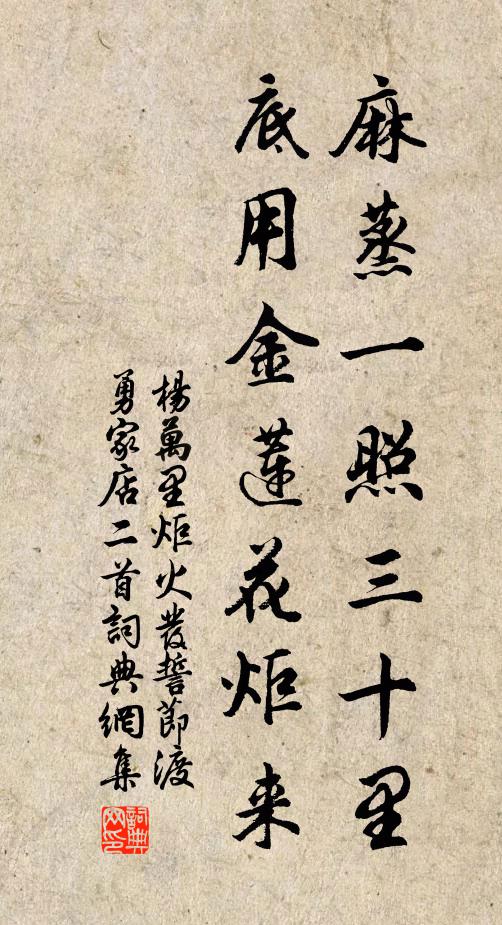 麻蒸一照三十里
底用金蓮花炬来
楊萬里炬火發誓節渡
勇家店二首詞典網集
詞典網印